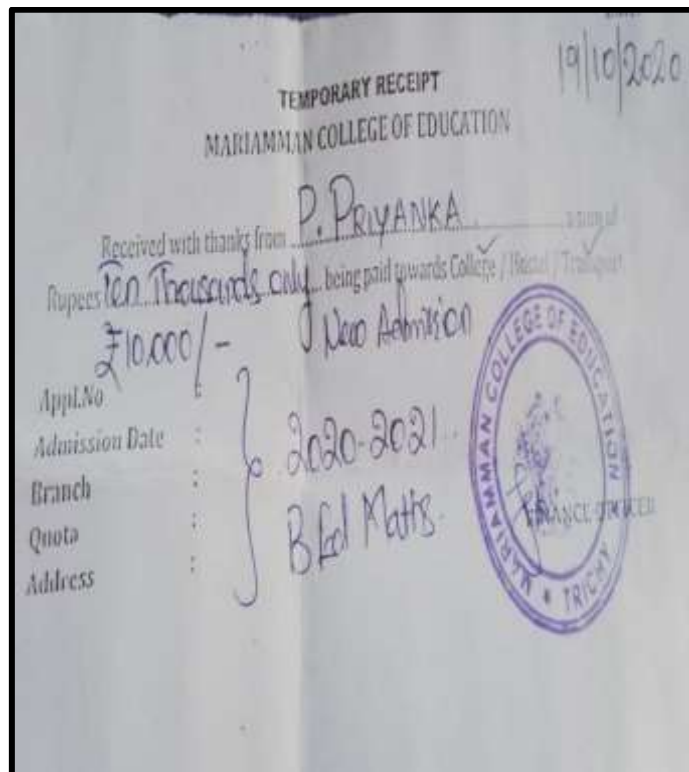 19/10/2020
TEMPORARY RECEIPT
MARIAMMAN COLLEGE OF EDUCATION
Received with thanks from P. PRIYANKA a sum of
Rupees Ten Thousands only being paid towards College / Hostel / Transport
₹10,000/- New Admission
Appl.No :
Admission Date :
Branch :
Quota :
Address :
2020-2021
B Ed Maths.
MARIAMMAN COLLEGE OF EDUCATION
* TRICHY *
FINANCE OFFICER